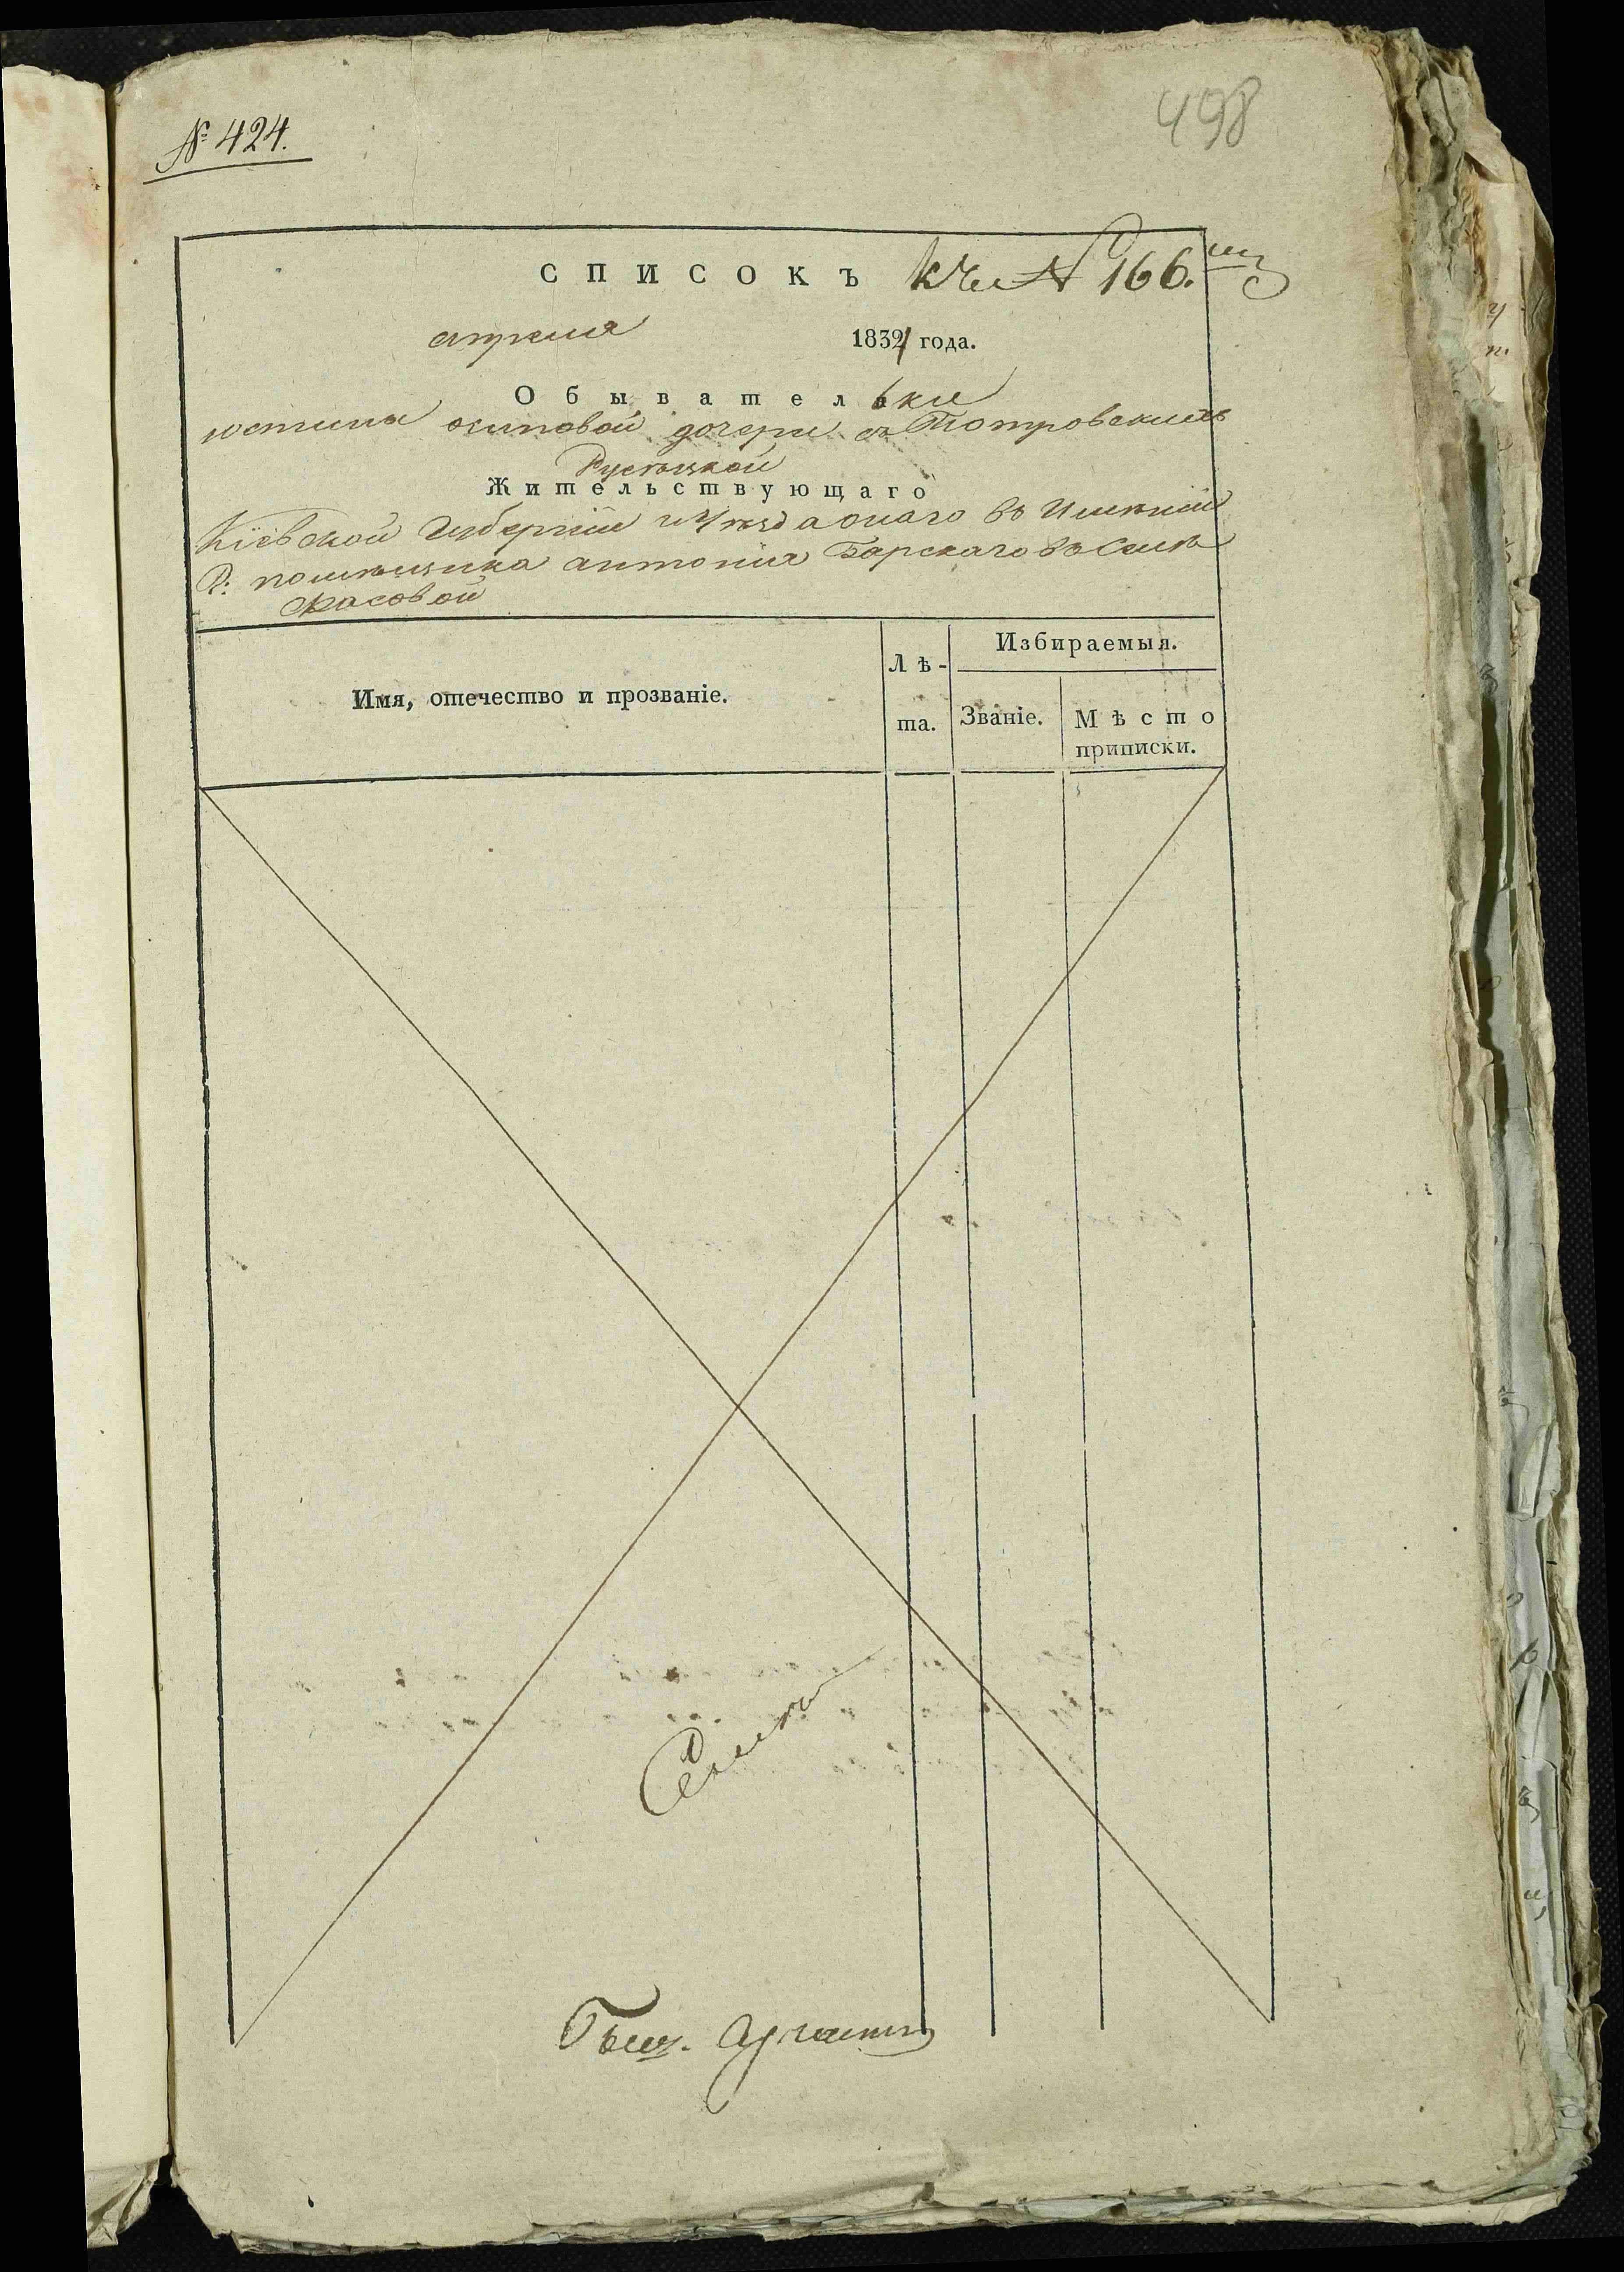 № 424.
498
СПИСОКЪ к № 166.
апреля 1832 года.
Обывательки
юстины осиповой дочери съ Піотровскихъ
Русецкой
Жительствующаго
Кіевской Губерніи и Уезда онаго въ Имѣніи
Р: помѣщика антонія Барскаго въ Селѣ
Имя, отечество и прозваніе.
Лѣ-
та.
Избираемыя.
Званіе.
Мѣсто
приписки.